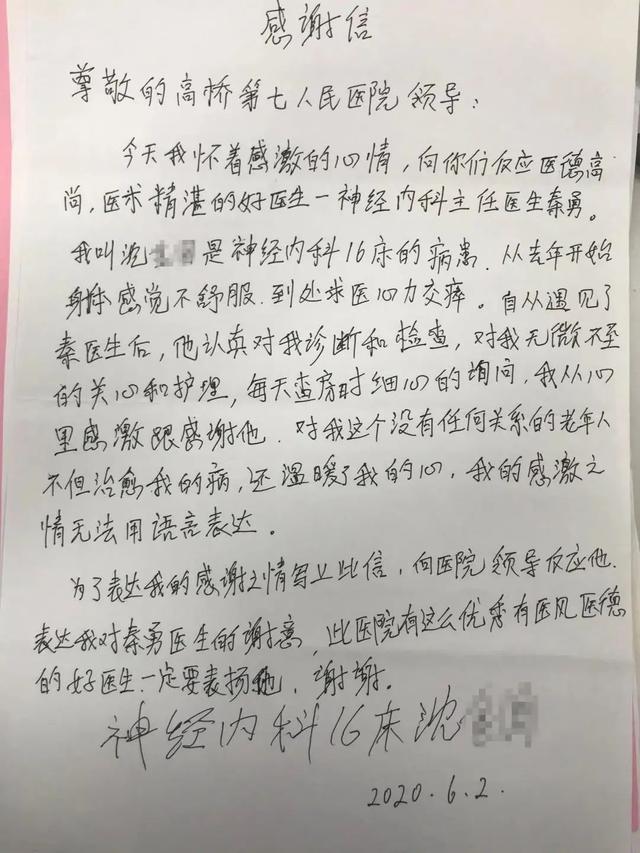 感谢信
尊敬的高桥第七人民医院领导：
今天我怀着感激的心情，向你们反应医德高
尚，医术精湛的好医生一神经内科主任医生秦勇。
我叫沈是神经内科16床的病患．从去年开始
身体感觉不舒服．到处求医心力交瘁。自从遇见了
秦医生后，他认真对我诊断和检查，对我无微不至
的关心和护理，每天查房时细心的询问，我从心
里感激跟感谢他．对我这个没有任何关系的老年人
不但治愈我的病，还温暖了我的心，我的感激之
情无法用语言表达。
为了表达我的感谢之情写上此信，向医院领导反应他．
表达我对秦勇医生的谢意，此医院有这么优秀有医风医德
的好医生一定要表扬他，谢谢。
神经内科16床沈
2020.6.2.